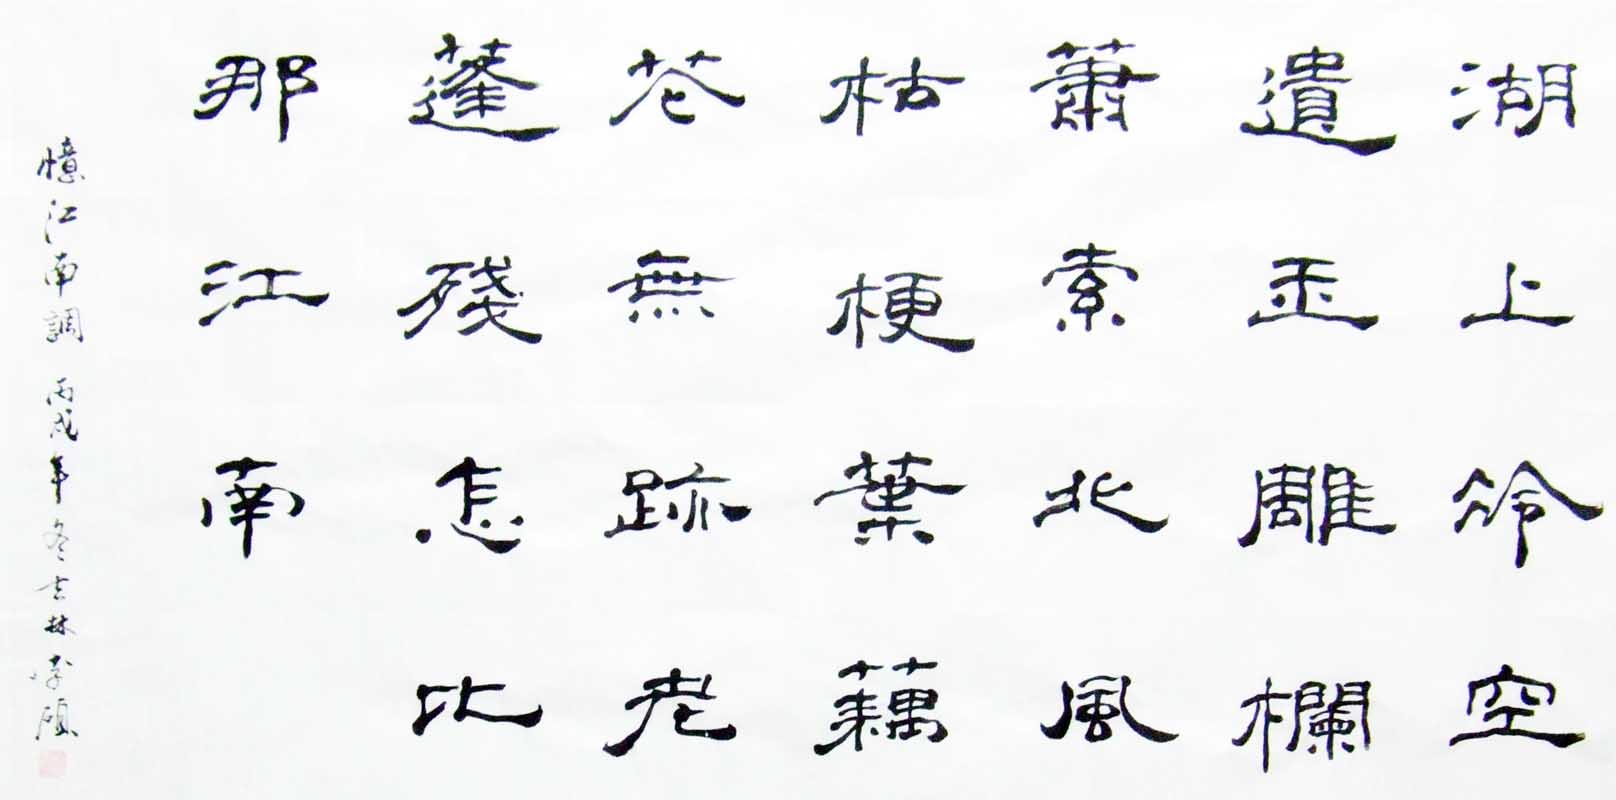 湖上冷空
遺玉雕欄
蕭索北風
枯梗葉藕
花無跡老
蓬殘怎比
那江南
憶江南調 丙戌年冬吉林